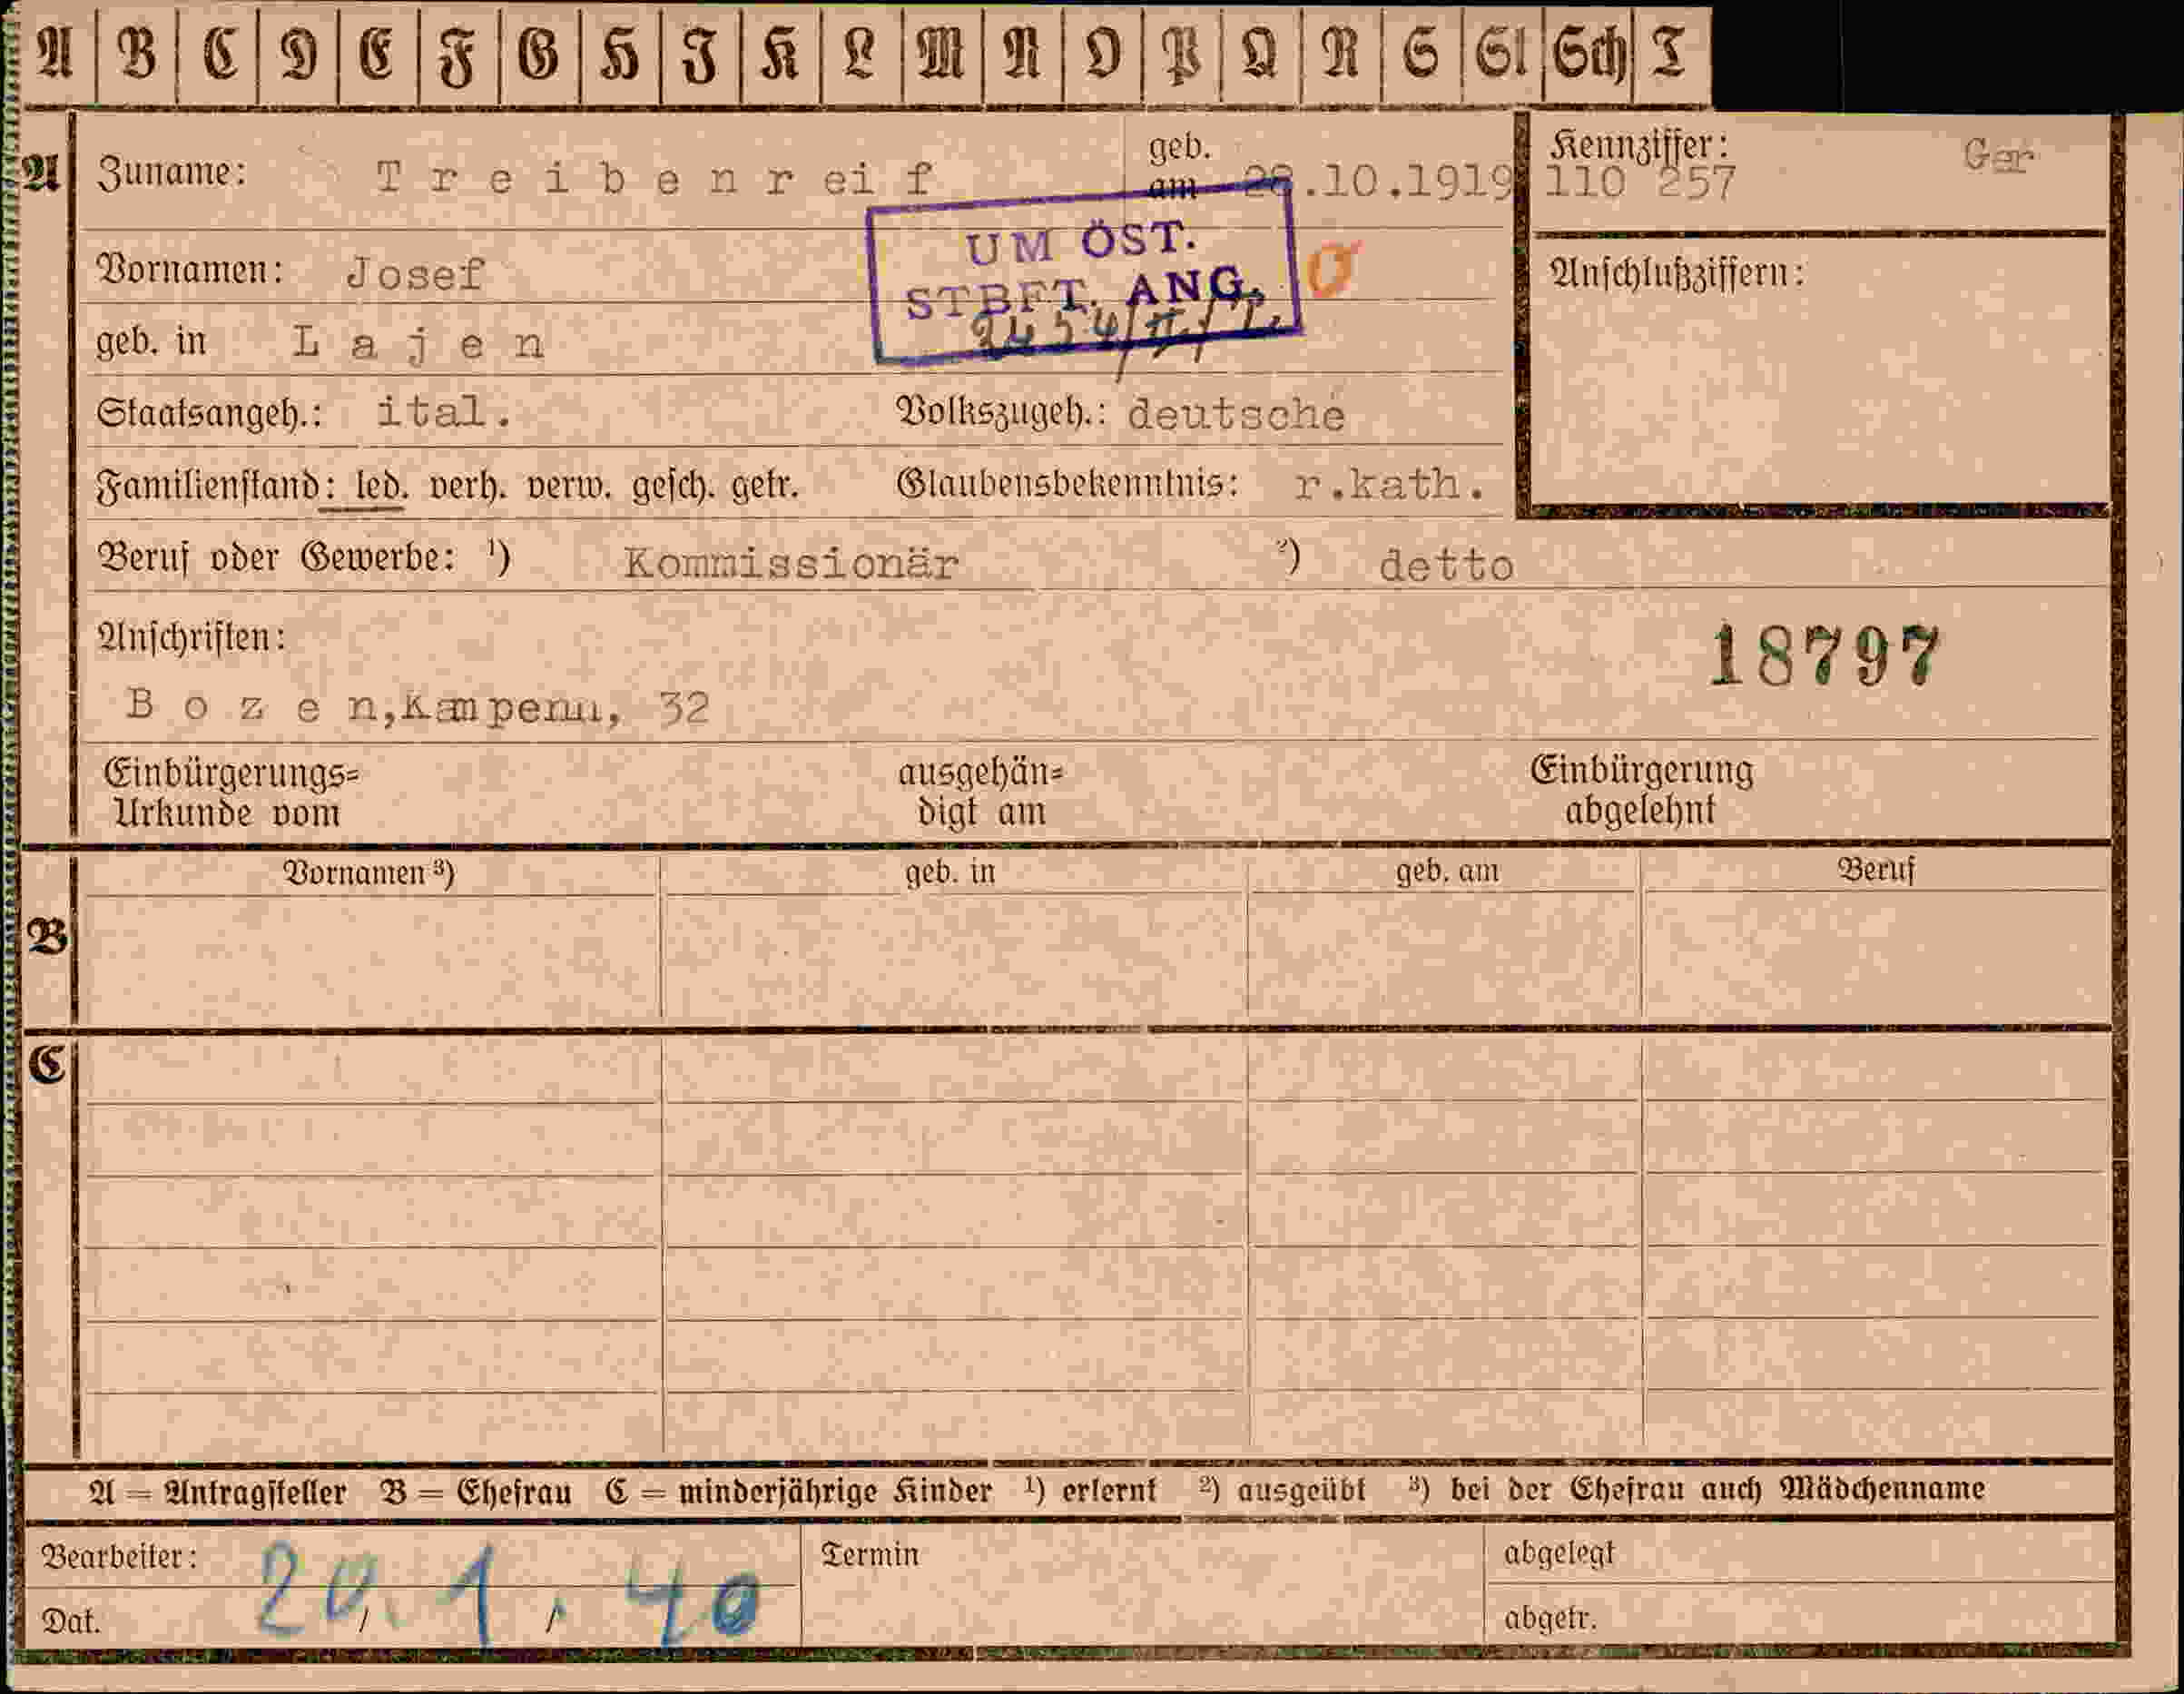 A B C D E F G H I K L M N O P Q R S St Sch T
A Zuname: Treibenreif geb. am .10.1919 Kennziffer: 110 257 Ger
UM ÖST.
STBFT. ANG.
Vornamen: Josef
Anschlußziffern:
geb. in Lajen
Staatsangeh.: ital. Volkszugeh.: deutsche
Familienstand: led. verh. verw. gesch. getr. Glaubensbekenntnis: r.kath.
Beruf oder Gewerbe: ¹) Kommissionär ²) detto
Anschriften:
18797
Bozen,Kampenn, 32
Einbürgerungs= ausgehän= Einbürgerung
Urkunde vom digt am abgelehnt
Vornamen ³) geb. in geb. am Beruf
B
C
A = Antragsteller B = Ehefrau C = minderjährige Kinder ¹) erlernt ²) ausgeübt ³) bei der Ehefrau auch Mädchenname
Bearbeiter: Termin abgelegt
Dat. 20. 1. 40 abgetr.